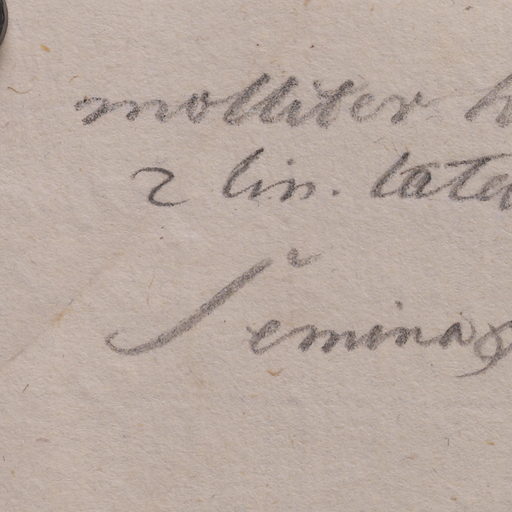 molliter h
2 lin. late
Semina